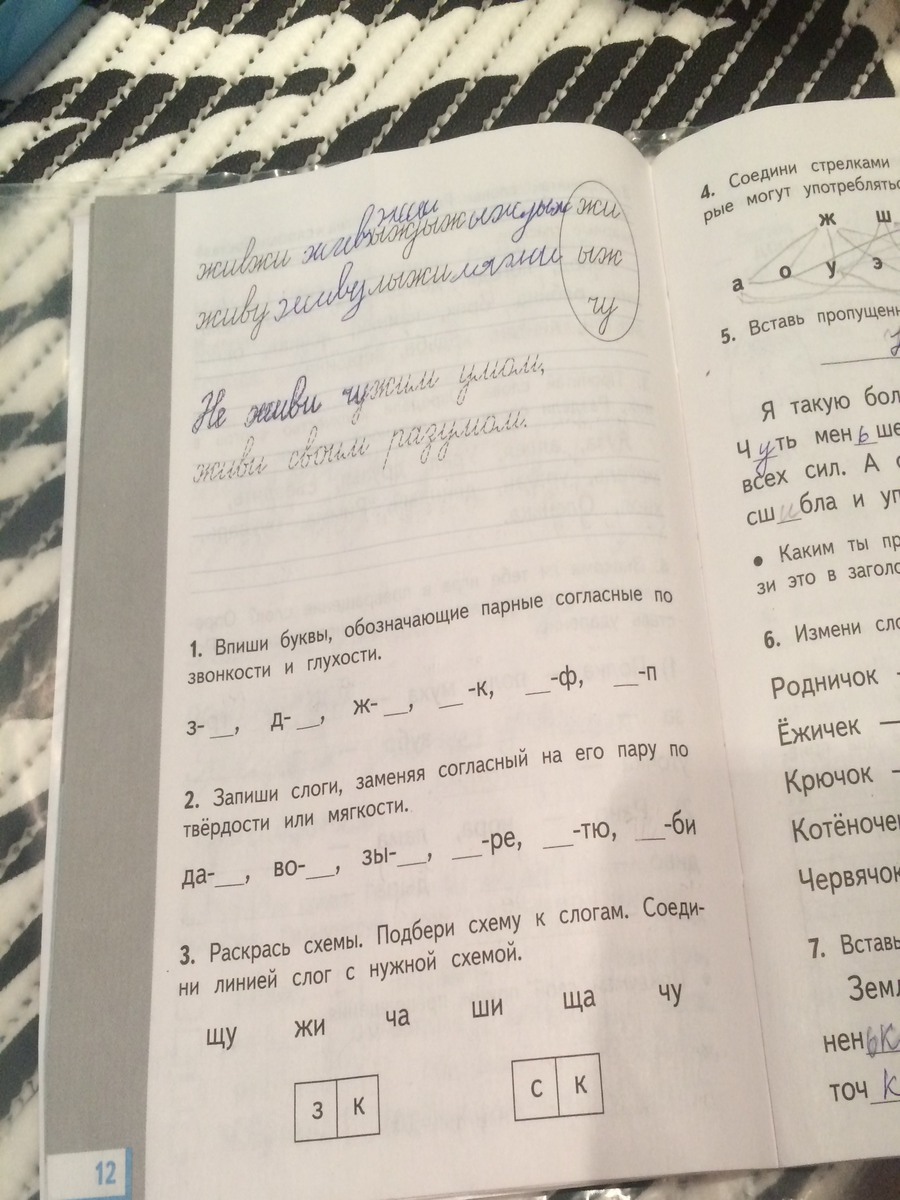 живжи живжи жиыждыжыждыж жи
живу живу лыжи лыжи ыж
чу
Не живи чужим умом,
живи своим разумом.
1. Впиши буквы, обозначающие парные согласные по
звонкости и глухости.
з-__, д-__, ж-__, __-к, __-ф, __-п
2. Запиши слоги, заменяя согласный на его пару по
твёрдости или мягкости.
да-__, во-__, зы-__, __-ре, __-тю, __-би
3. Раскрась схемы. Подбери схему к слогам. Соеди-
ни линией слог с нужной схемой.
щу жи ча ши ща чу
з к с к
12
4. Соедини стрелками
рые могут употреблятьс
ж ш
а о у э
5. Вставь пропущенн
Я такую бол
Чуть меньше
всех сил. А
сшибла и уп
• Каким ты пр
зи это в заголо
6. Измени сло
Родничок –
Ёжичек —
Крючок –
Котёночен
Червячок
7. Вставь
Земл
неньк
точк